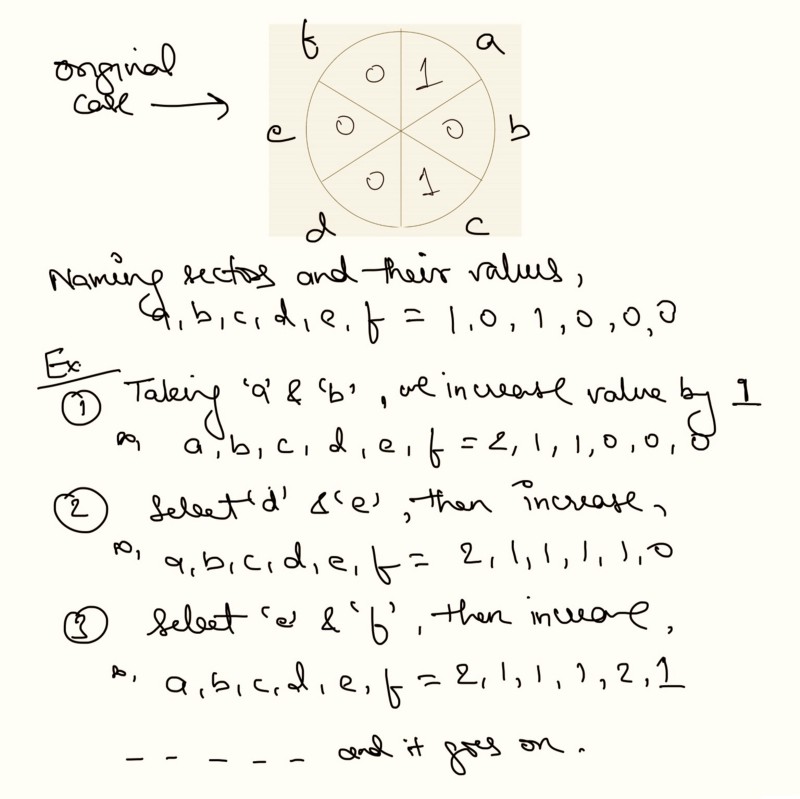 original
case →
f a
0 1
e 0 0 b
0 1
d c
Naming sectors and their values,
a, b, c, d, e, f = 1, 0, 1, 0, 0, 0
Ex
① Taking 'a' & 'b', we increase value by 1
so, a, b, c, d, e, f = 2, 1, 1, 0, 0, 0
② Select 'd' & 'e', then increase,
so, a, b, c, d, e, f = 2, 1, 1, 1, 1, 0
③ Select 'e' & 'f', then increase,
so, a, b, c, d, e, f = 2, 1, 1, 1, 2, 1
- - - - - and it goes on.